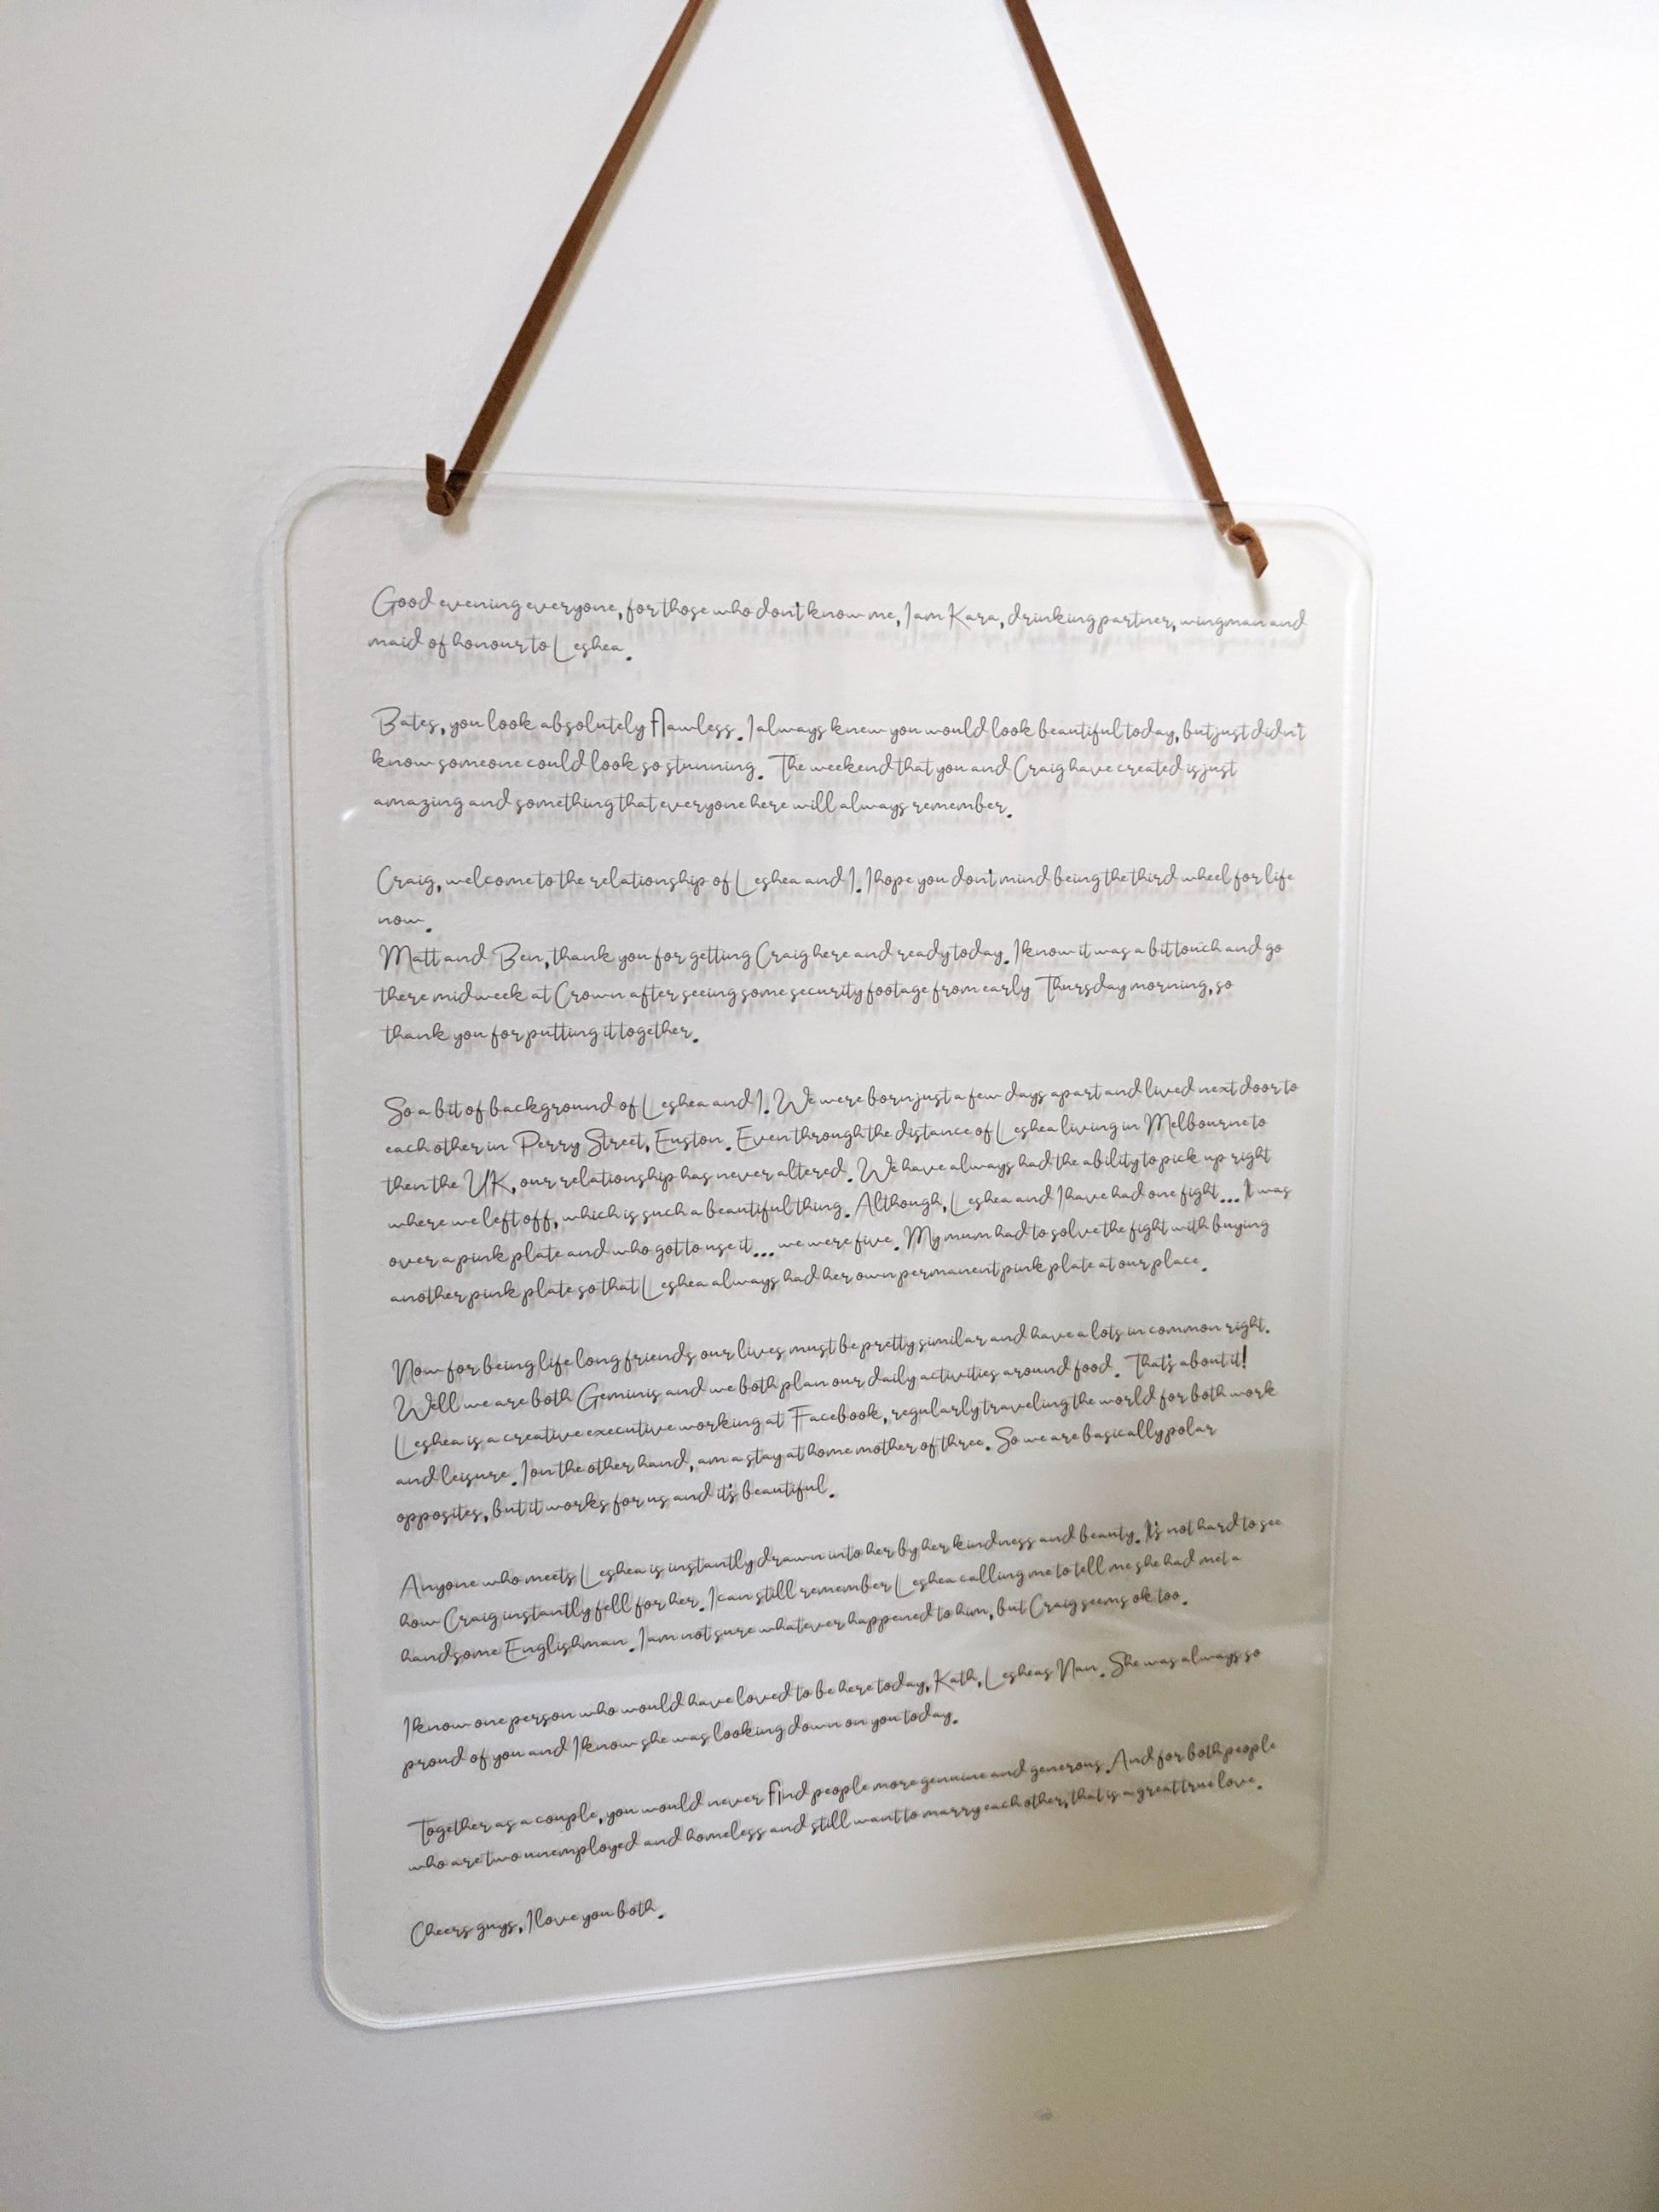 Good evening everyone, for those who don't know me, I am Kara, drinking partner, wingman and
maid of honour to Leshea.
Bates, you look absolutely flawless. I always knew you would look beautiful today, but just didn't
know someone could look so stunning. The weekend that you and Craig have created is just
amazing and something that everyone here will always remember.
Craig, welcome to the relationship of Leshea and I. I hope you don't mind being the third wheel for life
now.
Matt and Ben, thank you for getting Craig here and ready today. I know it was a bit touch and go
there midweek at Crown after seeing some security footage from early Thursday morning, so
thank you for putting it together.
So a bit of background of Leshea and I. We were born just a few days apart and lived next door to
each other in Perry Street, Euston. Even through the distance of Leshea living in Melbourne to
then the UK, our relationship has never altered. We have always had the ability to pick up right
where we left off, which is such a beautiful thing. Although, Leshea and I have had one fight... It was
over a pink plate and who got to use it... we were five. My mum had to solve the fight with buying
another pink plate so that Leshea always had her own permanent pink plate at our place.
Now for being life long friends our lives must be pretty similar and have a lots in common right.
Well we are both Geminis and we both plan our daily activities around food. That's about it!
Leshea is a creative executive working at Facebook, regularly traveling the world for both work
and leisure. I on the other hand, am a stay at home mother of three. So we are basically polar
opposites, but it works for us and it's beautiful.
Anyone who meets Leshea is instantly drawn into her by her kindness and beauty. It's not hard to see
how Craig instantly fell for her. I can still remember Leshea calling me to tell me she had met a
handsome Englishman. I am not sure whatever happened to him, but Craig seems ok too.
I know one person who would have loved to be here today, Kath, Lesheas Nan. She was always so
proud of you and I know she was looking down on you today.
Together as a couple, you would never find people more genuine and generous. And for both people
who are two unemployed and homeless and still want to marry each other, that is a great true love.
Cheers guys, I love you both.